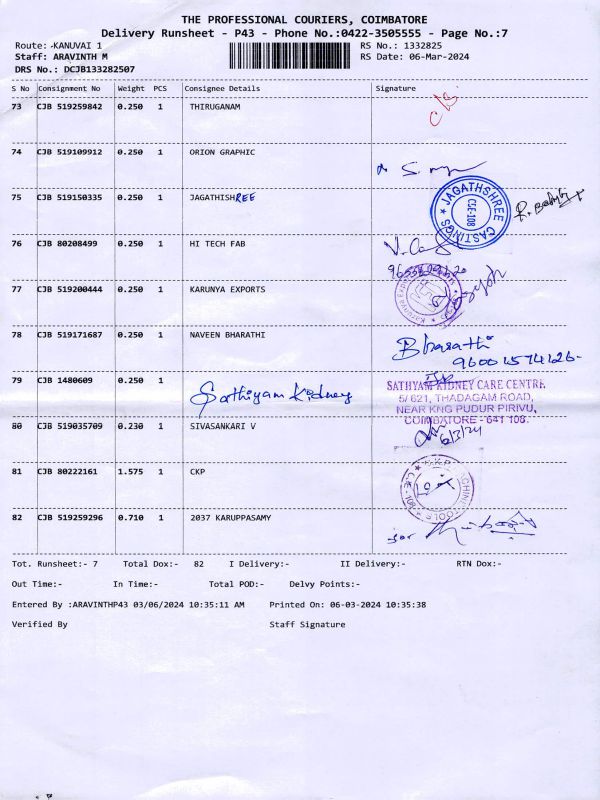 THE PROFESSIONAL COURIERS, COIMBATORE
Delivery Runsheet - P43 - Phone No.:0422-3505555 - Page No.:7
Route: -KANUVAI 1 RS No.: 1332825
Staff: ARAVINTH M RS Date: 06-Mar-2024
DRS No.: DCJB133282507
S No Consignment No Weight PCS Consignee Details Signature
73 CJB 519259842 0.250 1 THIRUGANAM
74 CJB 519109912 0.250 1 ORION GRAPHIC
75 CJB 519150335 0.250 1 JAGATHISHREE
JAGATHSHREE CASTINGS CBE-108
76 CJB 80208499 0.250 1 HI TECH FAB
77 CJB 519200444 0.250 1 KARUNYA EXPORTS
78 CJB 519171687 0.250 1 NAVEEN BHARATHI
Bharathi
79 CJB 1480609 0.250 1 Sathiyam Kidney
SATHYAM KIDNEY CARE CENTRE
5/ 621, THADAGAM ROAD,
NEAR KNG PUDUR PIRIVU,
COIMBATORE - 641 108.
80 CJB 519035709 0.230 1 SIVASANKARI V
6/3/24
81 CJB 80222161 1.575 1 CKP
82 CJB 519259296 0.710 1 2037 KARUPPASAMY
for
Tot. Runsheet:- 7 Total Dox:- 82 I Delivery:- II Delivery:- RTN Dox:-
Out Time:- In Time:- Total POD:- Delvy Points:-
Entered By :ARAVINTHP43 03/06/2024 10:35:11 AM Printed On: 06-03-2024 10:35:38
Verified By Staff Signature